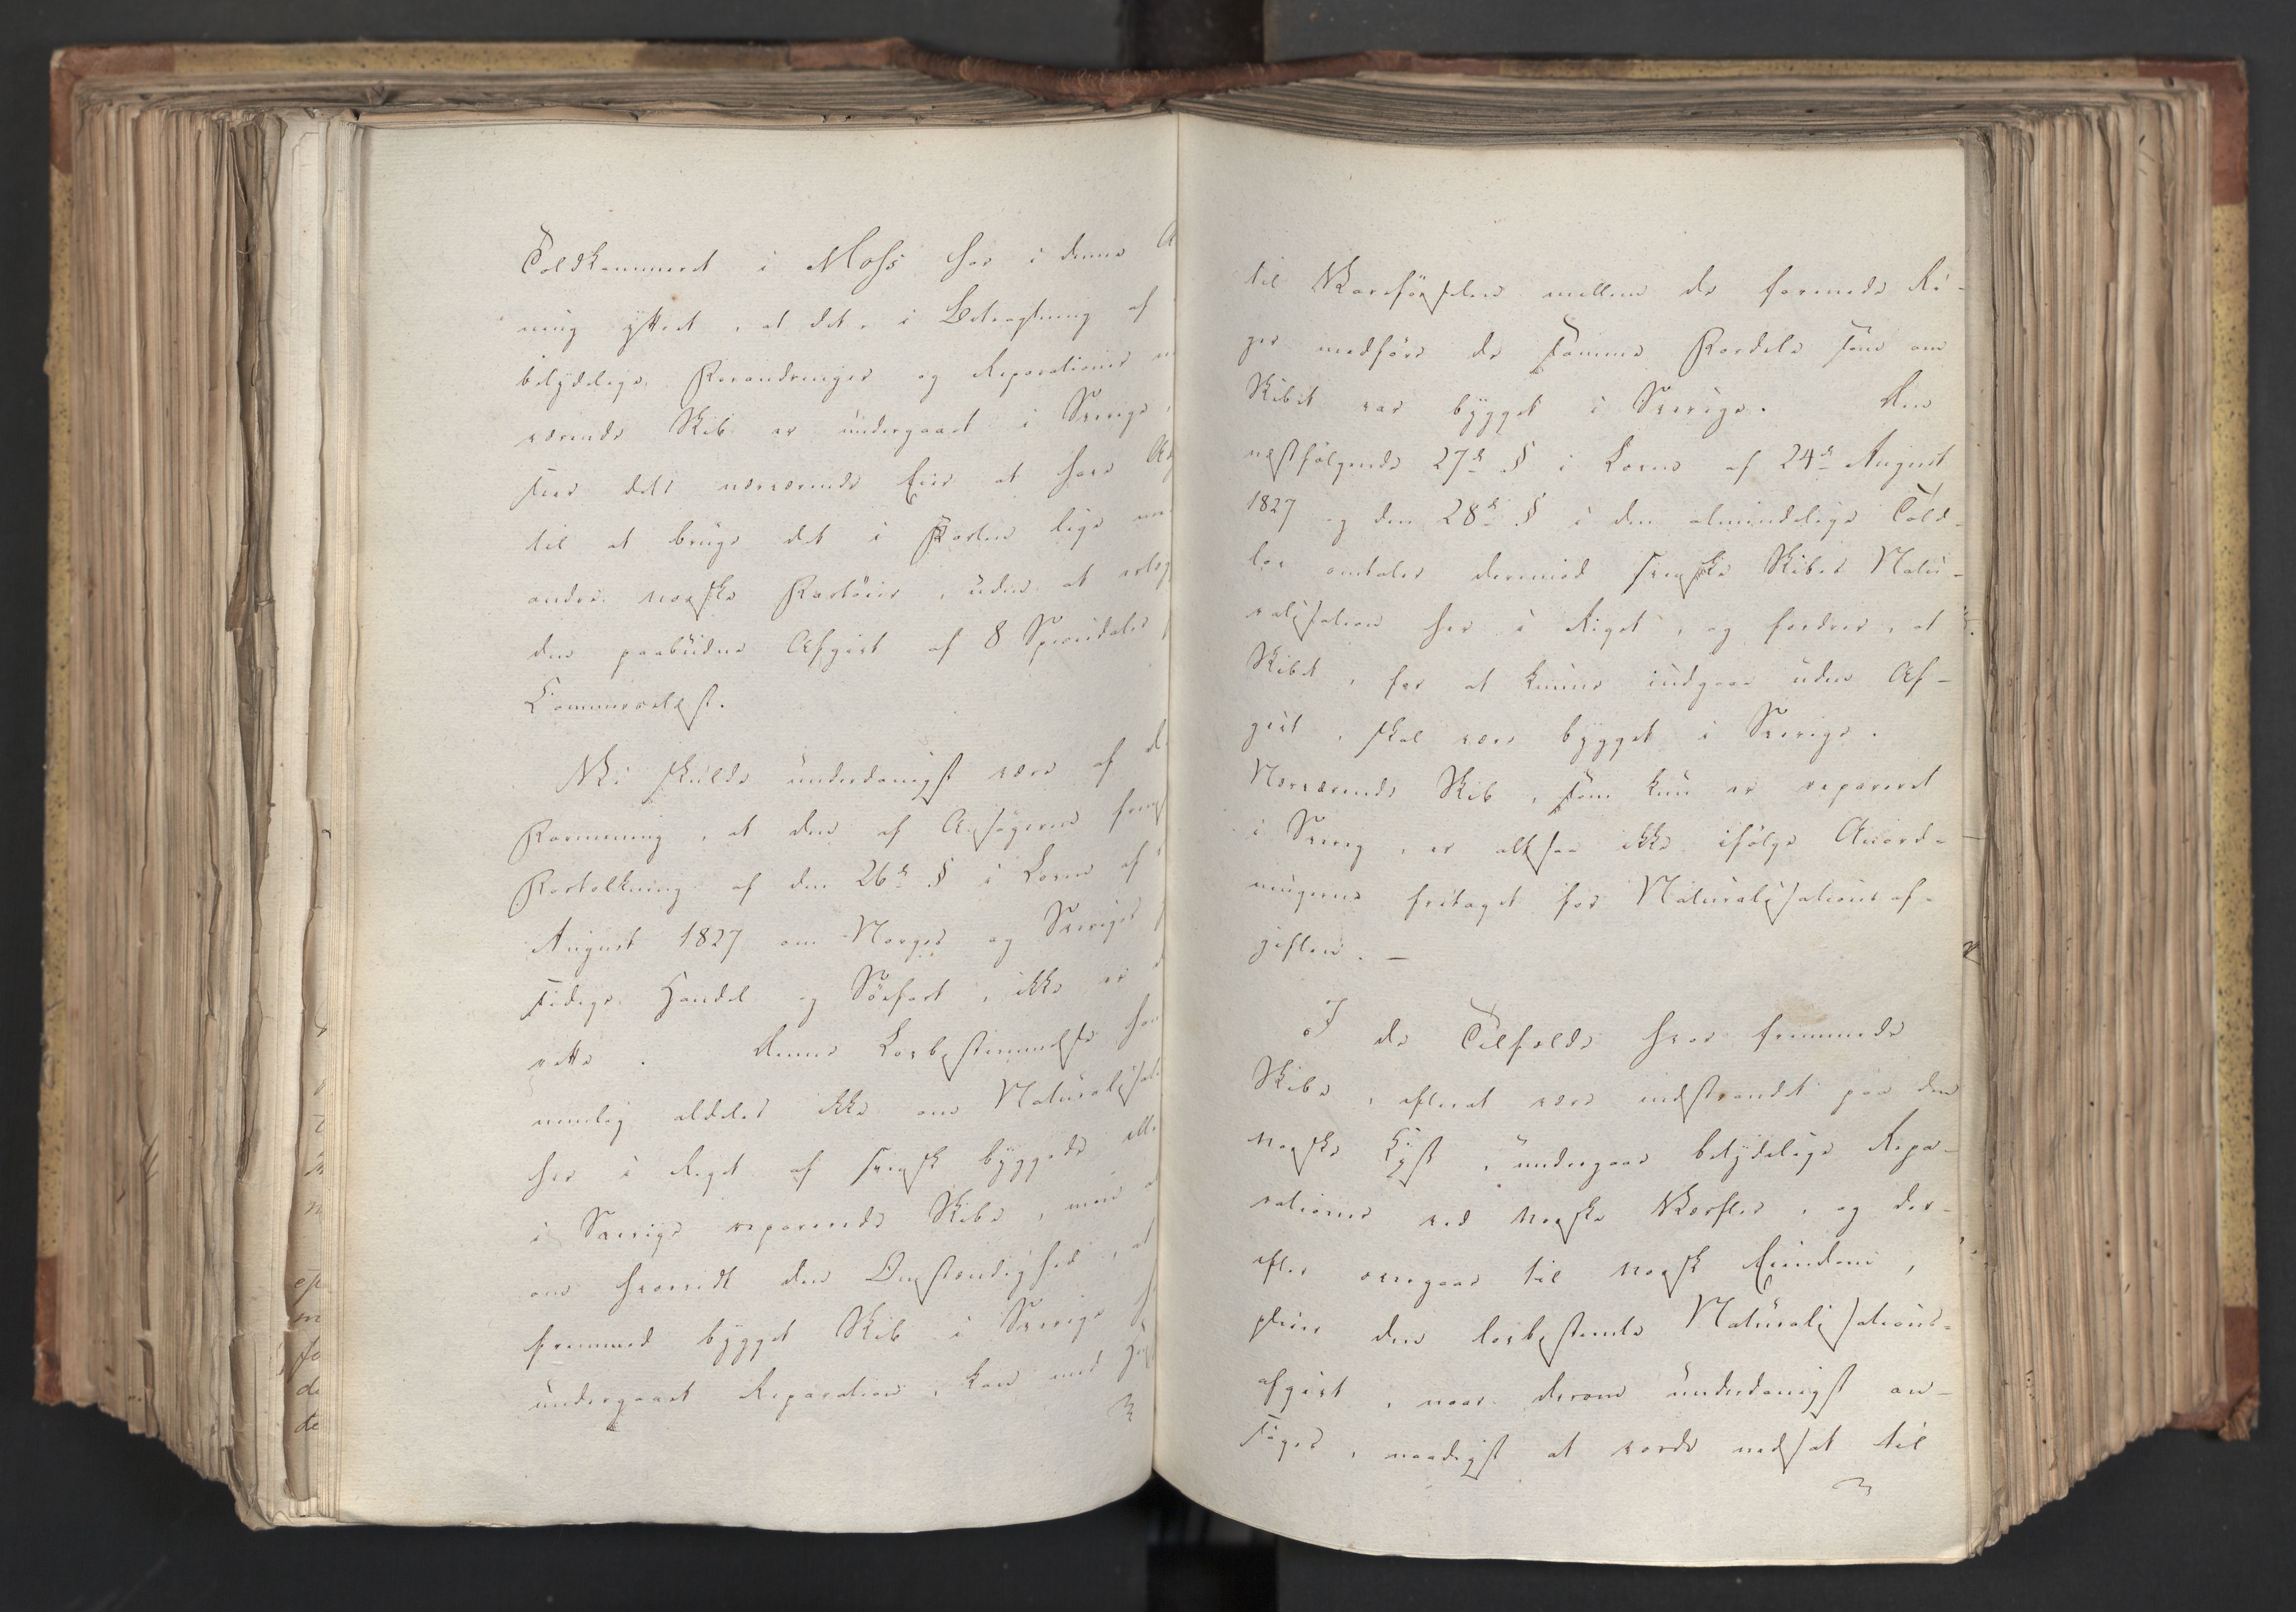 Toldkammeret i Moss har i denne
ning yttret, at det, i Betragtning af
betydelige Forandringer og Reparationer
værende Skib er undergaaet i Sverige,
sees dets nærværende Eier at have
til at bruge det i Farten lige
andre norske Fartöier, uden at erlæg
den paabudne Afgivt af 8 Speciedaler
Commercelæst.
Vi skulde underdanigst være af d
Formening, at den af Ansögeren frem
Fortolkning af den 26de § i Loven af
August 1827 om Norges og Sveriges
sidige Handel og Söefart, ikke er
rette. Denne Lovbestemmelse han
nemlig aldeles ikke om Naturalisat
her i Riget af svensk byggede elle
i Sverige reparerede Skibe, men
om hvorvidt den Omstændighed, at
fremmed bygget Skib i Sverige
undergaaet Reparation, kan med
til Vareförselen mellem de forenede Ri-
ger medföre de samme Fordele som om
Skibet var bygget i Sverige. Den
næstfölgende 27de § i Loven af 24de August
1827 og den 28de § i den almindelige Told-
lov omtaler derimod svenske Skibes Natu-
ralisation her i Riget, og fordrer, at
Skibet, for at kunne indgaae uden Af-
givt, skal være bygget i Sverige.
Nærværende Skib, som kun er repareret
i Sverig, er altsaa ikke ifölge Anord-
ningerne fritaget for Naturalisationsaf-
giften. —
I de Tilfælde hvor fremmede
Skibe, efterat være indstrandet paa den
norske Kyst, undergaae betydelige Repa-
rationer ved norske Værfter, og der-
efter overgaae til norsk Eiendom,
pleier den lovbestemte Naturalisations-
afgivt, naar derom underdanigst an-
söges, naadigst at vorde nedsat til